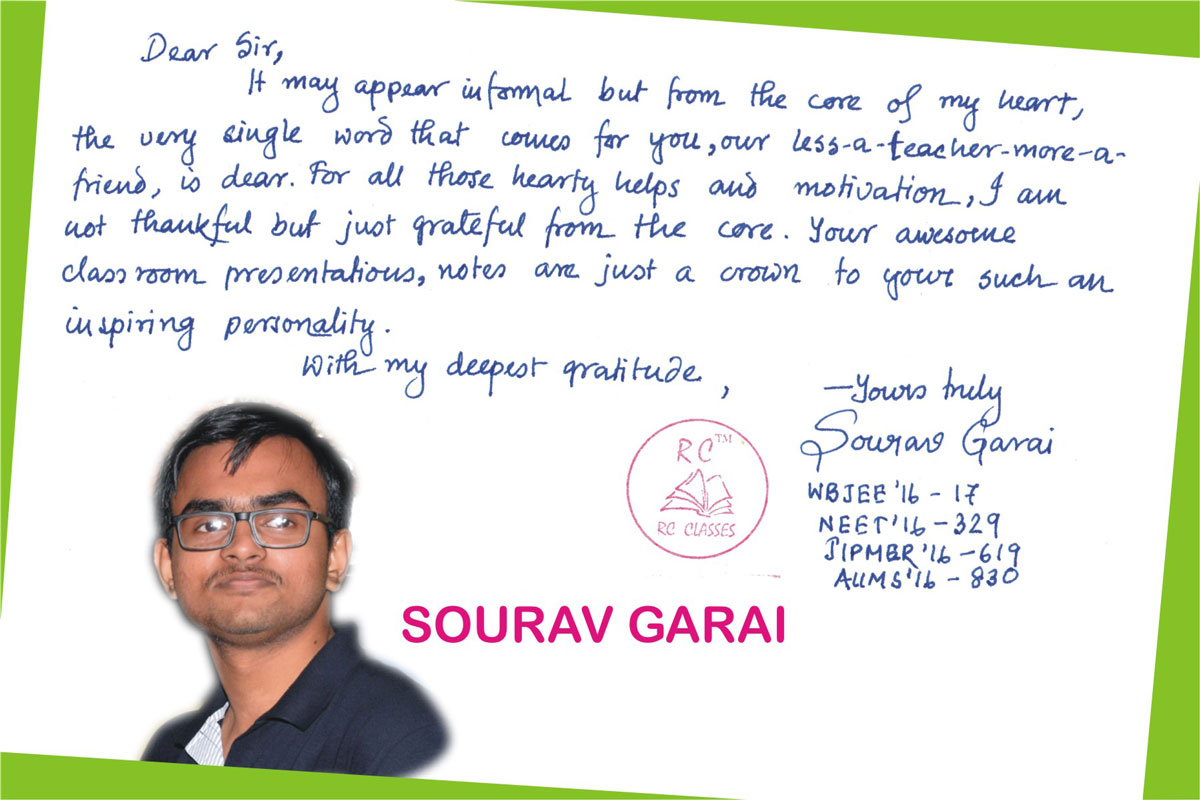 Dear Sir,
It may appear informal but from the core of my heart,
the very single word that comes for you, our less-a-teacher-more-a-
friend, is dear. For all those hearty helps and motivation, I am
not thankful but just grateful from the core. Your awesome
classroom presentations, notes are just a crown to your such an
inspiring personality.
With my deepest gratitude,
—Yours truly
Sourav Garai
WBJEE '16 - 17
NEET '16 - 329
JIPMER '16 - 619
AIIMS '16 - 830
RC™
RC CLASSES
SOURAV GARAI